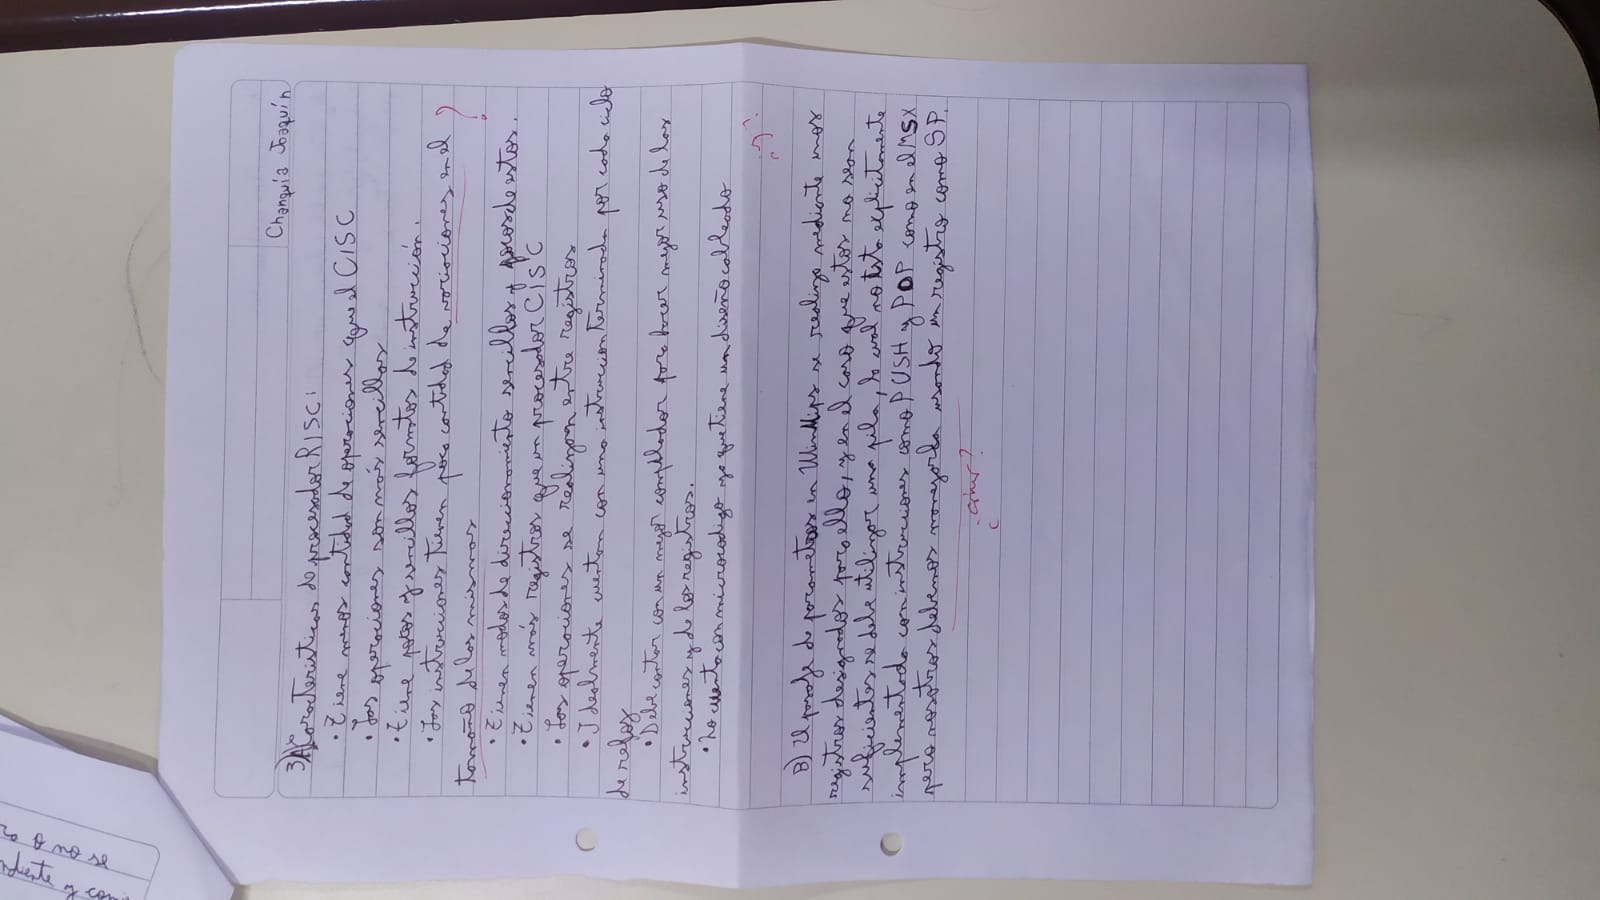 Changuía Joaquín
3) A) Características de procesador RISC:
• Tiene menos cantidad de operaciones que el CISC
• Las operaciones son más sencillas
• Tiene pocos y sencillos formatos de instrucción.
• Las instrucciones tienen poca cantidad de variaciones en el ?
tamaño de los mismos
• Tienen modos de direccionamiento sencillos y pocos de estos.
• Tienen más registros que un procesador CISC
• Las operaciones se realizan entre registros
• Idealmente cuentan con una instruccion terminada por cada ciclo
de reloj
• Debe contar con un mejor compilador para hacer mejor uso de las
instrucciones y de los registros.
• No cuenta con microcodigo ya que tiene un diseño cableado
B) El pasaje de parametros en WinMips se realiza mediante unos
registros designados para ello, y en el caso que estos no sean
suficientes se debe utilizar una pila, la cual no está explicitamente
implementada con instrucciones como PUSH y POP como en el MSX
pero nosotros debemos manejarla usando un registro como SP.
¿cómo?
ro o no se
ndiente y com